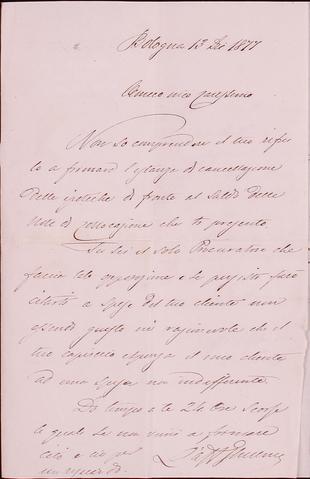 Bologna 13 Dic 1877
Amico mio carissimo
Non so comprendere il tuo rifiu
to a firmare l'istanza di cancellazione
delle ipoteche di fronte al saldo delle
Note di collocazione che ti presento.
Tu sei il solo Procuratore che
faccia tale opposizione e se persisti farò
citarti a spese del tuo cliente non
essendo giusto né ragionevole che il
tuo capriccio esponga il mio cliente
ad una spesa non indifferente.
Do tempo a te 24 ore scorse
le quali se non vieni a firmare